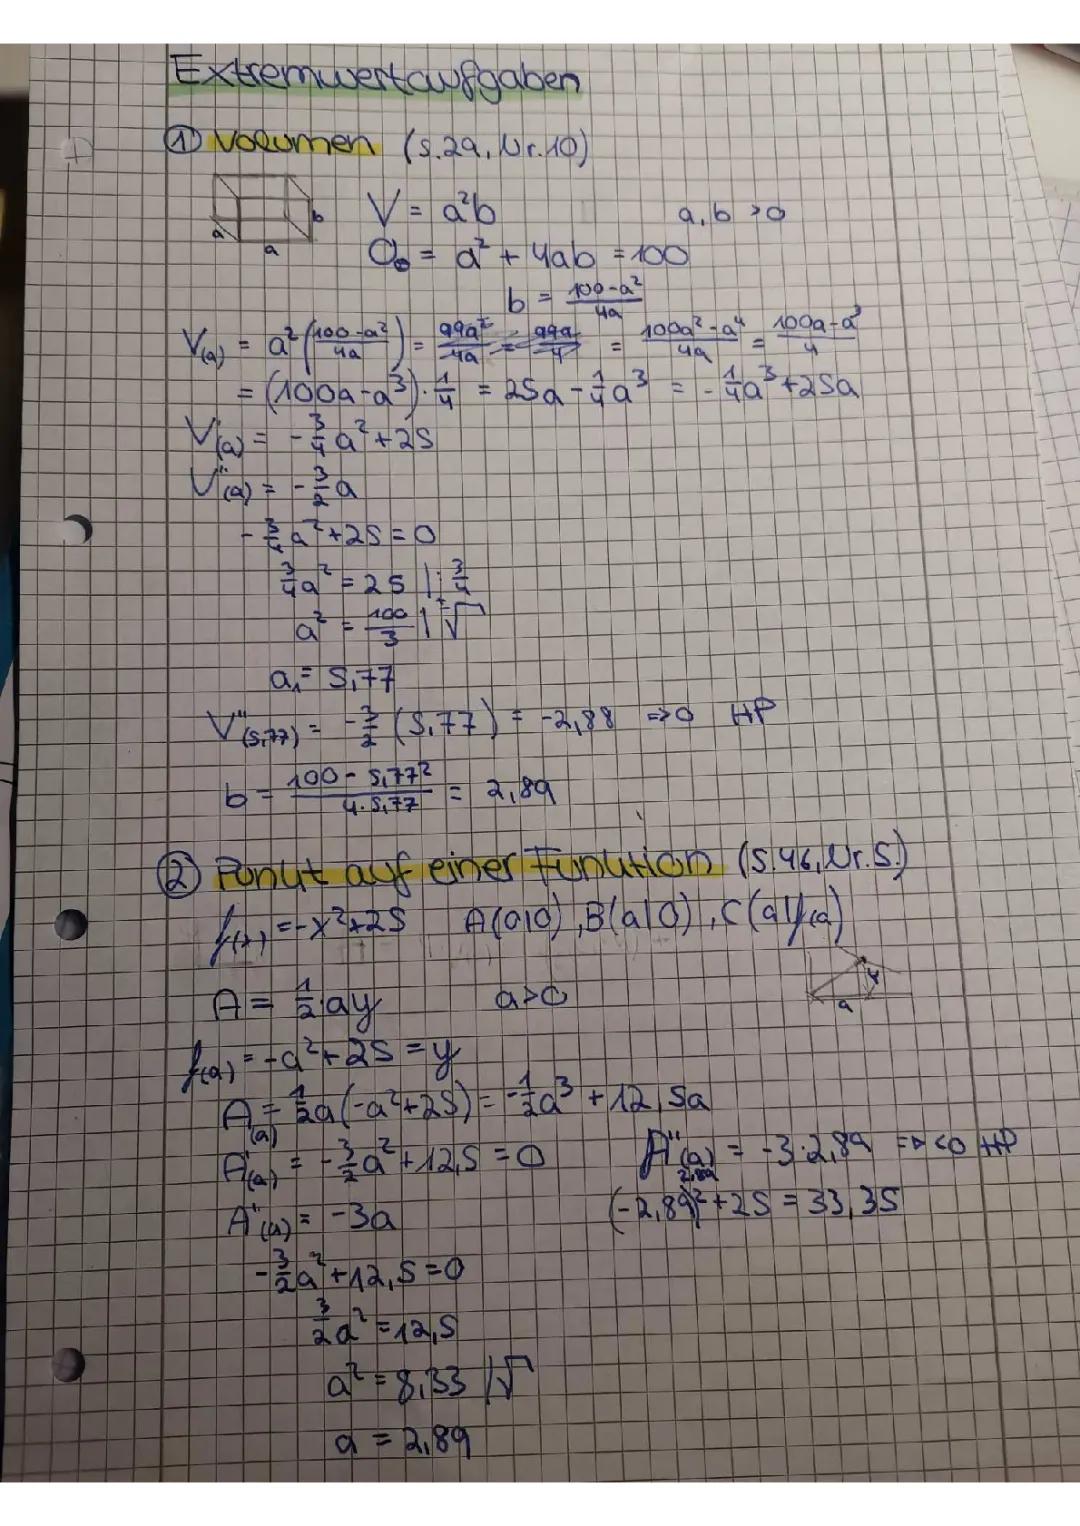 Extremwertaufgaben
① Volumen (S.29, Nr.10)
V = a²b a, b > 0
O = a² + 4ab = 100
b a a
b = \frac{100-a²}{4a}
V(a) = a² (\frac{100-a²}{4a}) = \frac{99a²}{4a} = \frac{99a}{4} = \frac{100a²-a⁴}{4a} = \frac{100a-a³}{4}
= (100a-a³) · \frac{1}{4} = 25a - \frac{1}{4}a³ = -\frac{1}{4}a³ + 25a
V'(a) = -\frac{3}{4}a² + 25
V''(a) = -\frac{3}{2}a
-\frac{3}{4}a² + 25 = 0
\frac{3}{4}a² = 25 | : \frac{3}{4}
a² = \frac{100}{3} | ±√
a₁ = 5,77
V''(5,77) = -\frac{3}{2} (5,77) = -2,88 => 0 HP
b = \frac{100 - 5,77²}{4·5,77} = 2,89
② Punkt auf einer Funktion (S.46, Nr.5.)
f(x) = -x²+25 A(0|0), B(a|0), C(a|f(a)
A = \frac{1}{2}ay a>0
y a
f(a) = -a²+25 = y
A(a) = \frac{1}{2}a(-a²+25) = -\frac{1}{2}a³ + 12,5a
A'(a) = -\frac{3}{2}a² + 12,5 = 0 A''(a) = -3·2,89 => <0 HP
2,89
A''(a) = -3a (-2,89)²+25 = 33,35
-\frac{3}{2}a² + 12,5 = 0
\frac{3}{2}a² = 12,5
a² = 8,33 |√
a = 2,89